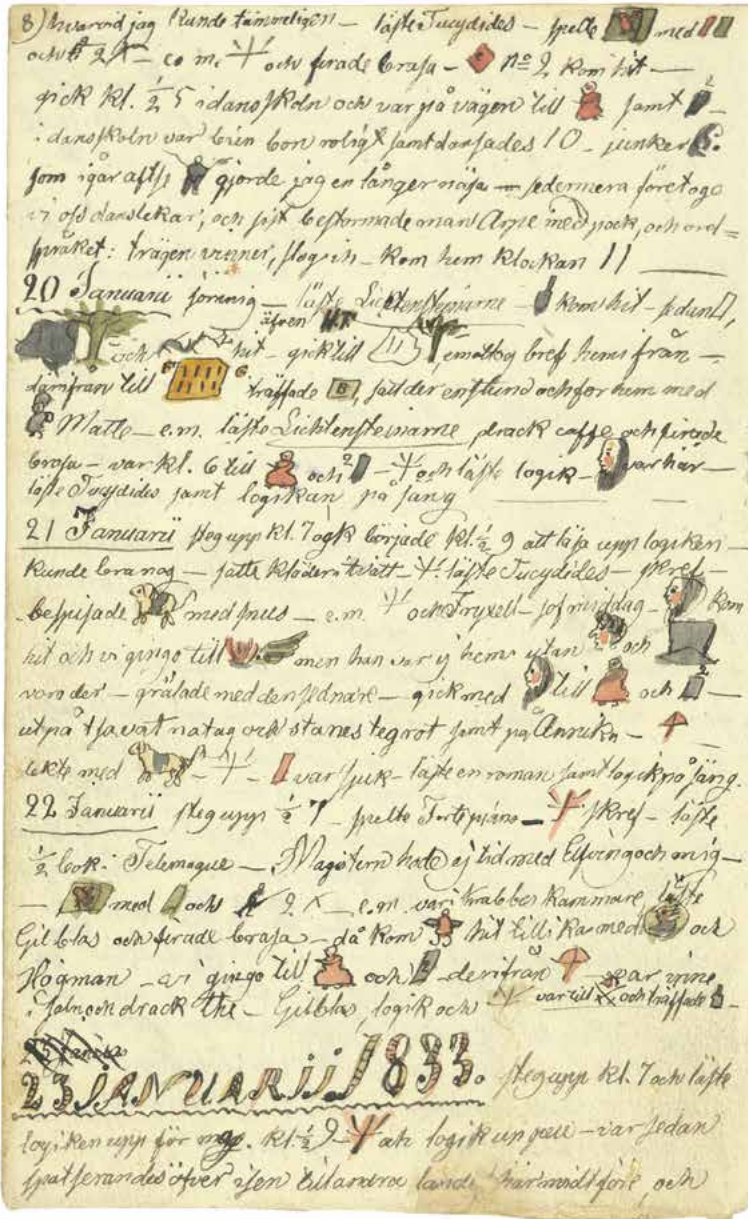 8) hvarvid jag kunde tämmeligen — läste Tucydides — spelte med
och 2 X — e. m. och firade brasa — No 2 kom hit —
gick kl. ½ 5 i danskoln och var på vägen till samt 2 —
i danskoln var bien bon roligt samt dansades 10 — junker
som igår aftse gjorde jag en långer näsa — sedermera företogo
vi oss danslekar, och sist bestormade man Arpe med pock, och ord=
språket: trägen vinner, slog in — kom hem klockan 11
20 Januarii — läste Lichtenstejnarne — kom hit — sedan
äfven
och hit — gick till 11, emottog bref hemifrån —
därifrån till träffade B, satt der en stund och for hem med
Matte — e.m. läste Lichtensteinarne drack caffe och firade
brasa — var kl. 6 till och 2 — och läste logik — var här —
läste Tucydides samt logikan på säng
21 Januarii steg upp kl. 7 och började kl. ½ 9 att läsa upp logiken —
kunde bra nog — satte kläder i tvätt — läste Tucydides — skref —
bespisade med snus — e.m. och Fryxell — sof middag — kom
hit och vi gingo till men han var ej hemi utan och
voro der — grälade med den sednare — gick med till och 2 —
ut på samt på —
lekte med — var sjuk — läste en roman samt logik på säng.
22 Januarii steg upp ½ 7 — spelte Fortepiano — skref — läste
½ bok i Telemaque — Magistern hade ej tid med Elfving och mig —
— med och 2 X — e.m. var i Krabbes kammare, läste
Gilblas och firade brasa — då kom hit tillika med och
Högman — vi gingo till och 2 — derifrån — var inne
i saln och drack the — Gilblas, logik och var till och träffade —
23 JANUARII 1833. steg upp kl. 7 och läste
logiken upp för mgr. kl. ½ 9 — logik — var sedan
spatserandes öfver isen till andra landet härmidtföre, och